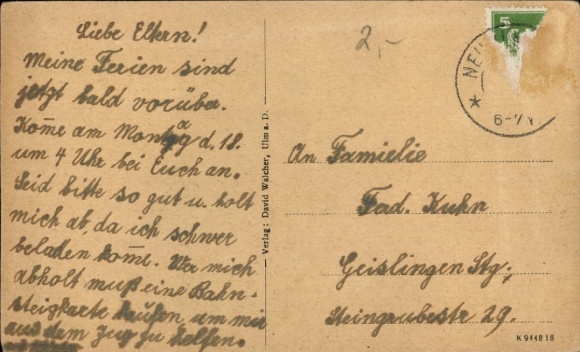 Liebe Eltern!
Meine Ferien sind
jetzt bald vorüber.
Kom̄e am Montag d. 18.
um 4 Uhr bei Euch an.
Seid bitte so gut u. holt
mich ab, da ich schwer
beladen kom̄e. Wer mich
abholt muß eine Bahn-
steigkarte kaufen um mir
aus dem Zug zu helfen.
Verlag: David Walcher, Ulm a. D.
2,-
5
NEU
6-7
An Familie
Ferd. Kuhn
Geislingen Stg.
Steingrubestr 29.
K 9448 18